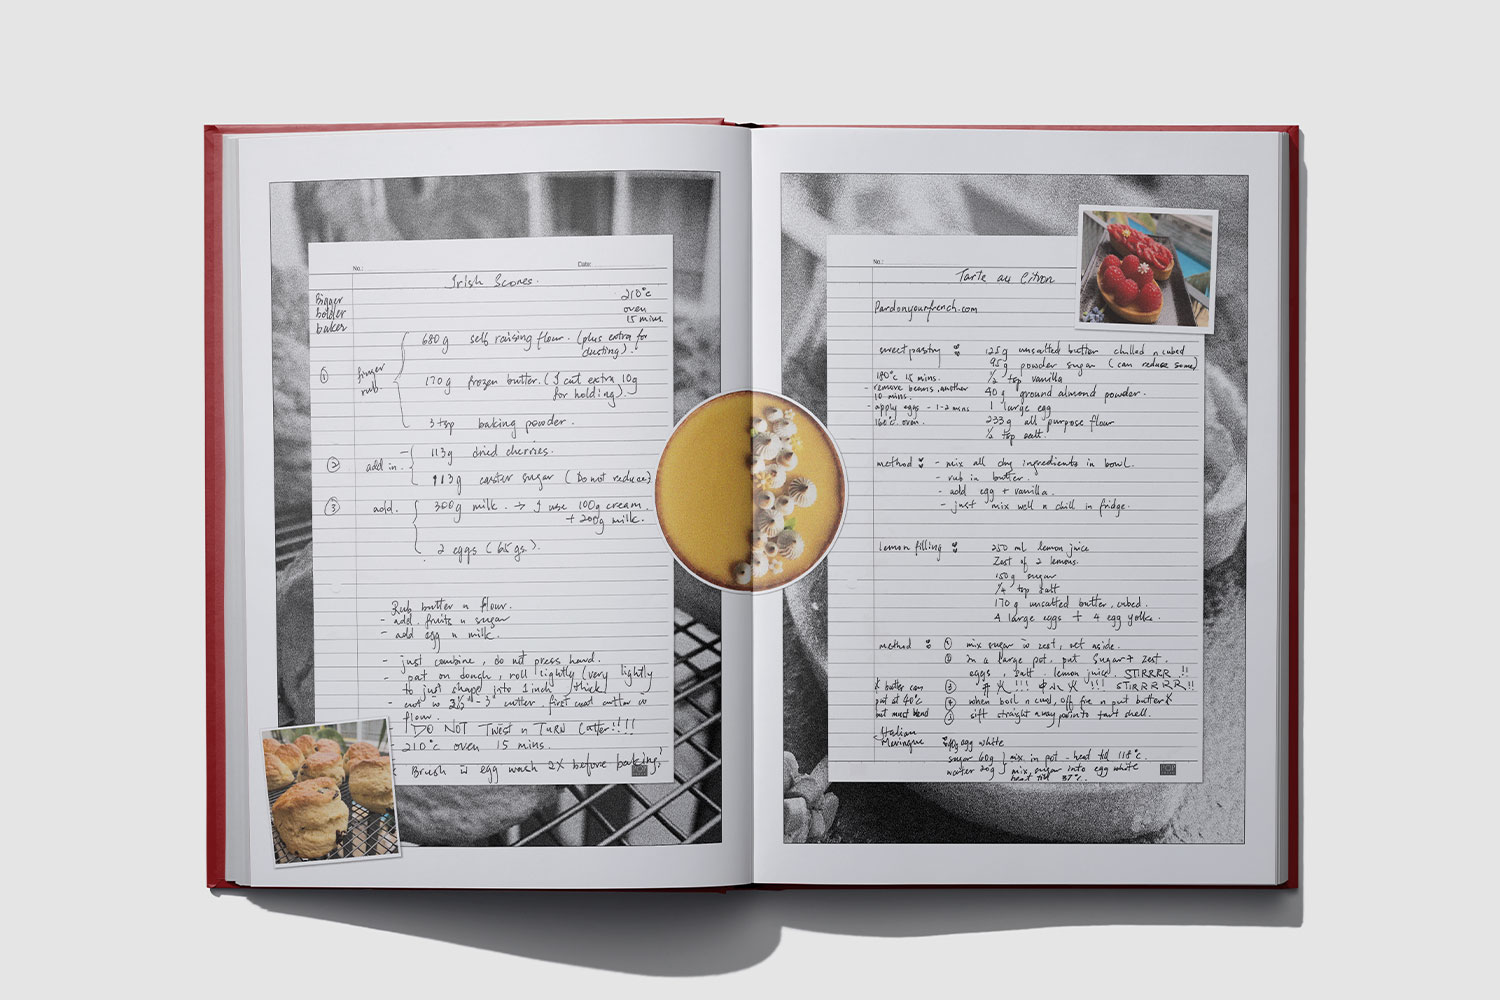 No.:
Date:
Irish Scones.
Bigger
bolder
baker
210°c
oven
15 mins.
① finger rub.
680g self raising flour. (plus extra for
dusting).
170g frozen butter. (I cut extra 10g
for holding).
3 tsp baking powder.
② add in.
113g dried cherries.
113g caster sugar (Do not reduce)
③ add.
300g milk. → I use 100g cream.
+ 200g milk.
2 eggs (65gs).
Rub butter n flour.
- add fruits n sugar
- add egg n milk.
- just combine, do not press hard.
- pat on dough, roll lightly (very lightly
to just shape into 1 inch thick)
- cut w 2½" - 3" cutter. first coat cutter w
flour.
- DO NOT Twist n TURN Cutter!!!!
- 210°c oven 15 mins.
Brush w egg wash 2X before baking!
No.:
Tarte au Citron
Pardonyourfrench.com
sweet pastry :
125g unsalted butter chilled n cubed
95g powder sugar (can reduce some)
½ tsp vanilla
40g ground almond powder.
1 large egg
233g all purpose flour
½ tsp salt.
180°c 15 mins.
- remove beans, another
10 mins.
- apply eggs - 1-2 mins
160°c oven.
method : - mix all dry ingredients in bowl.
- rub in butter.
- add egg + vanilla.
- just mix well n chill in fridge.
lemon filling :
250 ml lemon juice
Zest of 2 lemons.
150g sugar
¼ tsp salt
170g unsalted butter, cubed.
4 large eggs + 4 egg yolks.
method : ① mix sugar w zest, set aside.
② in a large pot, put sugar + zest.
eggs, salt. lemon juice. STIRRRR !!
③ 开火!!! 中小火 !!! STIRRRRR!!
④ when boil n curd, off fire n put butter*
⑤ sift straight away pour into tart shell.
* butter can
put at 40°c
but must blend
Italian
Meringue : 40g egg white
sugar 60g
water 20g
mix in pot - heat till 114°c
mix sugar into egg white
heat till 37°c.